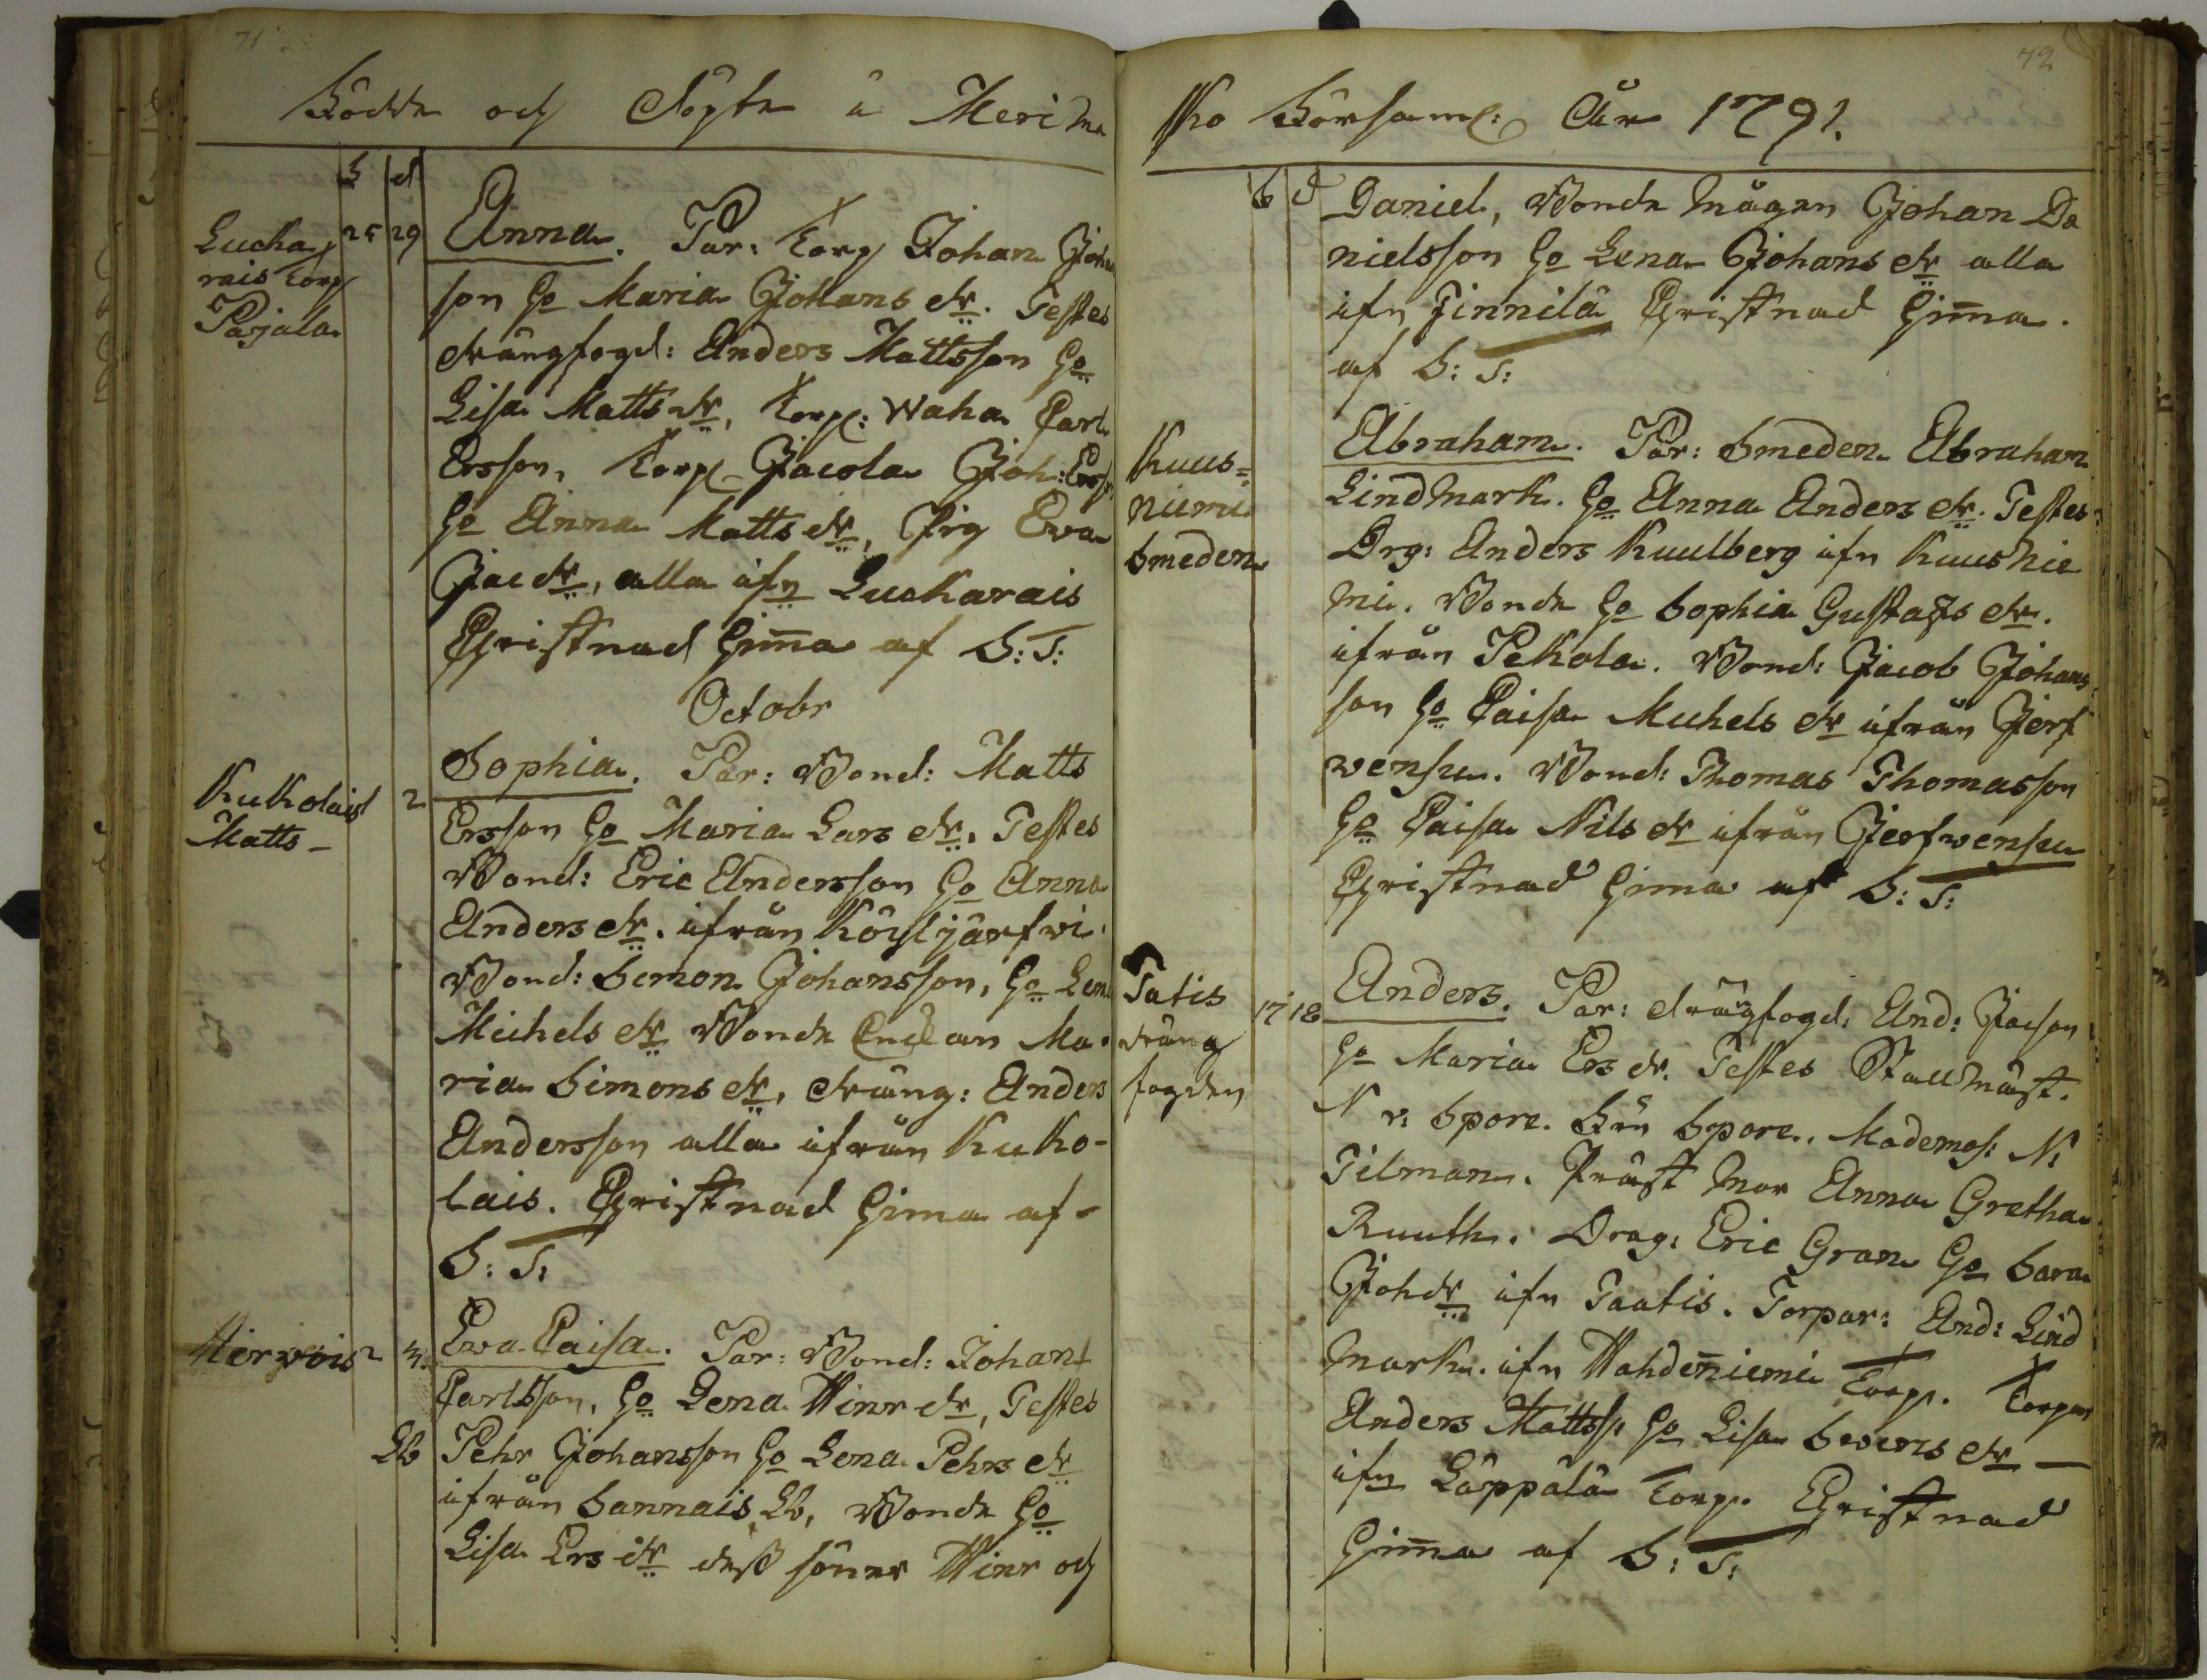 71
Födde och Döpte i Meri ma
f d
Luckarais torp Pajala
25 29
Anna. Par: Torp Johan Johan
son Ho Maria Johans dr. Testes
drängfogd: Anders Mattsson Ho
Lisa Matts dr, Torp: Waha Carl
Ersson, Torp Jacola Joh: Ersson
Ho Anna Matts dr, Pig Ewa
Jac dr, alla ifn Luckarais
Christnad hima af S: T:
Octobr
Kukolais Matts
2
Sophia. Par: Bond: Matts
Ersson Ho Maria Lars dr. Testes
Bond: Eric Andersson Ho Anna
Anders dr. ifrån
Bond: Semon Johansson, Ho Lena
Michels dr Bonde Enckan Ma
ria Simons dr, dräng: Anders
Andersson alla ifrån Kuko-
lais. Christnad hima af
S: T:
Hirvois
2 3.
Ewa Caisa. Par: Bond: Johan
Carlsson, Ho Lena Hinr dr, Testes
Lb Pehr Johansson Ho Lena Pehrs dr
ifrån Sannais Lb, Bonde Ho
Lisa Ers dr dess söner Hinr och
72
sko Församl: År 1791.
f d
Daniel, Bonde mågen Johan Da
nielsson Ho Lena Johans dr alla
ifn Finnilä Christnad hima
af S: T:
Kuus=
niemi
Smeden
Abraham. Par: Smeden Abraham
Lindmark. Ho Anna Anders dr. Testes
Drg: Anders Kuulberg ifn Kuusnie
mi. Bonde Ho Sophia Gustafs dr.
ifrån Pekola. Bond: Jacob Johans
son Ho Caisa Michels dr ifrån Jerf
wensu. Bond: Thomas Thomasson
Ho Caisa Nils dr ifrån Jerfwensu
Christnad hima af S: T:
Tatis
dräng
fogden
17 18
Anders. Par: drängfogd: And: Jacson
Ho Maria Ers dr. Testes Stallmäst.
N v: Spore. Frn Spore. Mademos: N:
Tilman. Präst mor Anna Gretha
Ruuth. Drag: Eric Gran Ho Sara
Joh dr ifn Taatis. Torpar: And: Lind
mark. ifn Wahdenniemi Torp. Torpar
Anders Mattss: Ho Lisa Swens dr
ifn Läppälä Torp. Christnad
hima af S: T: